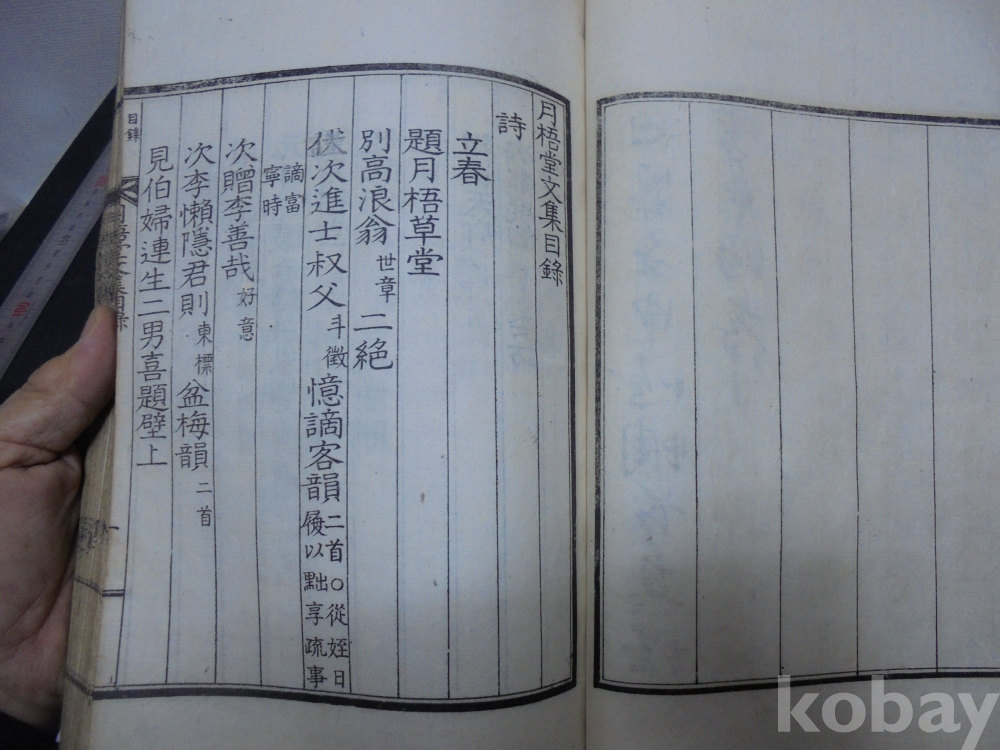 月梧堂文集目錄
詩
立春
題月梧草堂
別高浪翁世章二絶
伏次進士叔父斗徵憶謫客韻二首○從姪日
履以黜享疏事
謫富
寧時
次贈李善哉好意
次李懶隱君則東標盆梅韻二首
見伯婦連生二男喜題壁上
目錄
kobay